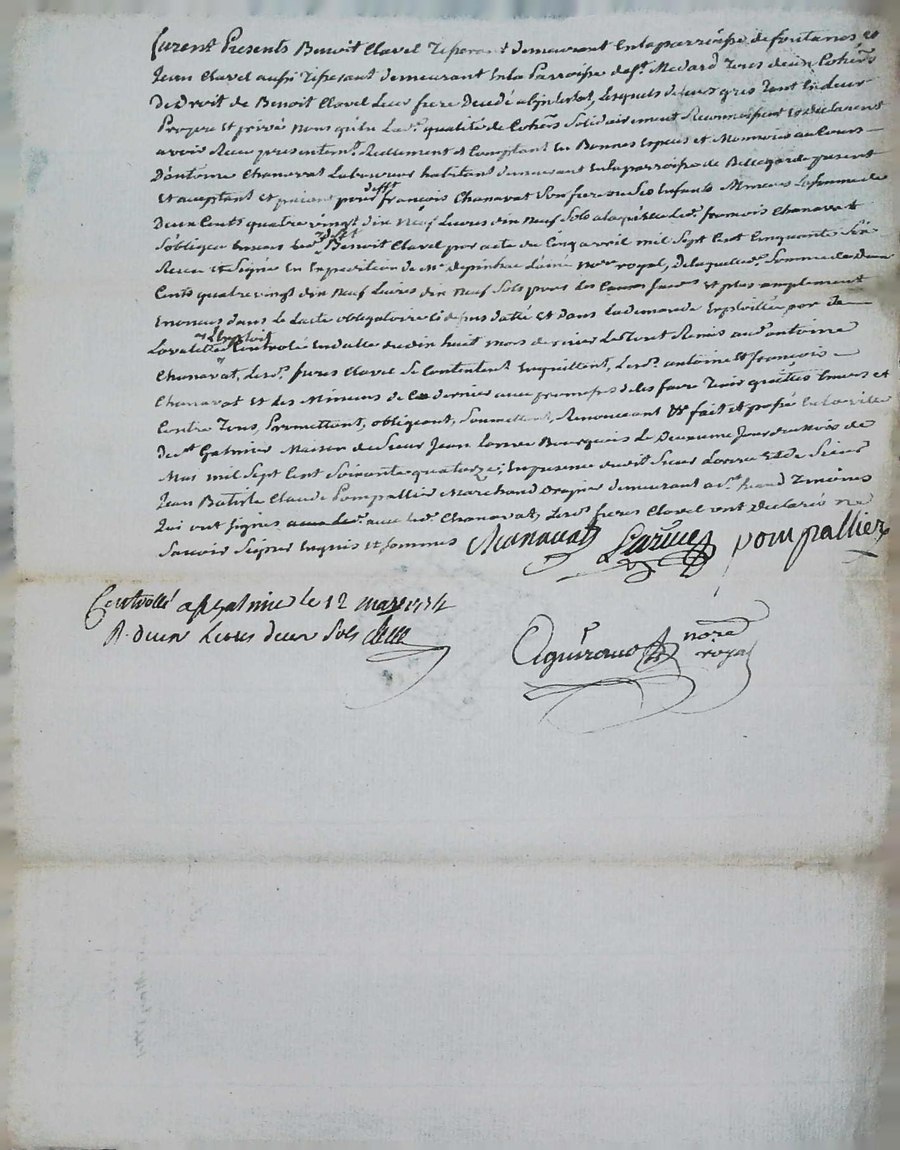 furent Presents Benoit Clavel Tisserant demeurant En la parroisse de fontanes et
Jean Clavel aussi Tisserant demeurant En la Parroisse de st. Medard Tous deux Cohers
De droit de Benoit Clavel Leur frere Decedé abjntestat, Lesquels de leurs gres Tant En Leur
Propre et privé nom qu'En La de. qualité de Cohers Solidairement Reconnoissent et declarent
avoir Receu presentemt. Reellement et Comptant En Bonnes Especes et Monnoies au Cours
D'antoine Chanavat Laboureur habitant demeurant En la parroisse de Bellegarde present
Et acceptant et paiant pour defft françois Chanavat Son frere ou Ses Enfants Mineurs La Somme de
deux Cents quatre vingt dix Neuf Livres dix Neuf Sols a laquelle led. françois Chanavat
S'obligea Envers led. defft Benoit Clavel par acte du Cinq avril mil Sept Cent Cinquante Six
Receu et Signé En Expedition de Me. depinhac L'ainé nore royal, de laquelle de. Somme de deux
Cents quatre vingt dix Neuf Livres dix Neuf Sols pour les Causes et plus amplement
Enoncés dans Le acte obligatoire Ci dessus daté Et dans La demande Exploittée par
Lavalette Lexploit Controlé En datte du dix huit mars dernier Le Tout Remis aud. antoine
Chanavat, Lesd. freres Clavel Se Contentent Enquittent, Lesd. antoine et françois
Chanavat Et les Mineurs de Ce dernier avec promesse de les faire Tenir quittes Envers et
Contre Tous, Promettant, obligeant, Soumettant, Renonceant &c fait et passé En la ville
de st Galmier Maison du Sieur Jean Bourgeois Le Deuxieme Jour du Mois de
Mai mil Sept Cent Soixante quatorze; En presence dudit Sieur Et de Sieur
Jean Batiste Claude Pompallier Marchand demeurant a st. Temoins
Qui ont Signes avec led. Chanavat, Lesd. freres Clavel ont declaré ne
Savoir Signer Enquis et Sommes Chanavat pompallier
Controllé a st Galmier le 12 1774
R. deux Livres deux Sols
nore
royal